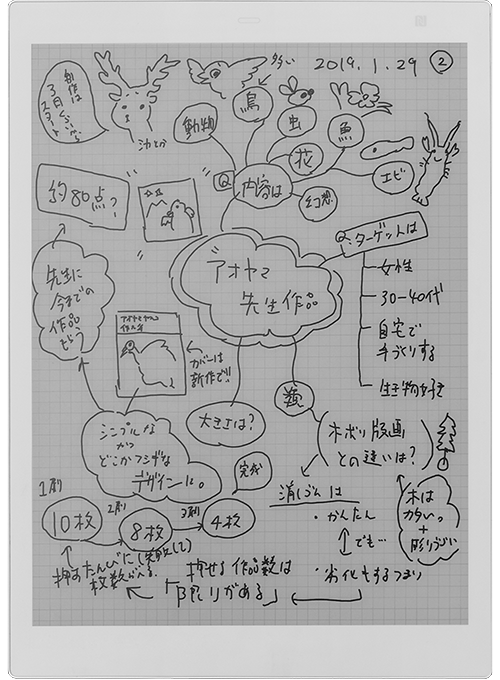 2019.1.29 ②
多い
鳥
虫
魚
動物
花
エビ
Q
内容は
幻想
創作は
3月
スタート
約80点っ!
Q.ターゲットは
女性
30-40代
自宅で
手づくりする
生き物好き
アオヤマ
先生作品
先生に
今までの
作品
もらう
カバーは
新作で!!
大きさは?
シンプルな
かつ
どこかフシギな
デザインに。
木ボリ版画
との違いは?
木は
カタいっ
+
彫りづらい
消しゴムは
・かんたん
でも…
・劣化もするつまり
完成
1刷
10枚
2刷
8枚
3刷
4枚
押すたんびに(失敗して)
枚数がへる
押せる作品数は
「限りがある」